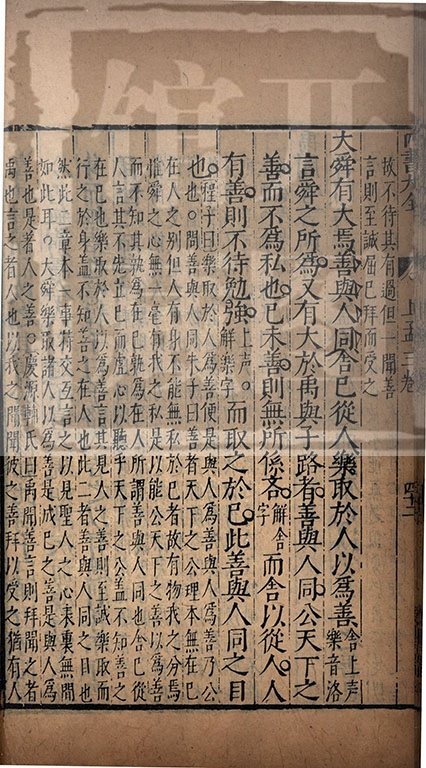 四書大全 上孟三卷 四十二
故不待其有過但一聞善
言則至誠屈己拜而受之
大舜有大焉善與人同舍己從人樂取於人以爲善舍上声樂音洛
言舜之所爲又有大於禹與子路者善與人同公天下之
善而不爲私也己未善則無所係吝解舍字而舍以從人人
有善則不待勉強上声。解樂字而取之於己此善與人同之目
也。程子曰樂取於人爲善便是與人爲善與人爲善乃公
也。問善與人同朱子曰善者天下之公理本無在己
在人之別但人有身不能無私於己者故有物我之分焉
惟舜之心無一毫有我之私是以能公天下之善以爲善
而不知其孰爲在己孰爲在人所謂善與人同也舍己從
人言其不先立己而虛心以聽乎天下之公蓋不知善之
在己也樂取於人以爲善言其見人之善則至誠樂取而
行之於身蓋不知善之在人也此二者善與人同之目也
然此二章本一事特交互言之以見聖人之心表裏無間
如此耳。大舜樂取諸人以爲善是成己之善是與人爲
善也是著人之善。慶源輔氏曰禹聞善言則拜聞之者
禹也言之者人也以我之聞聞彼之善拜以受之猶有人